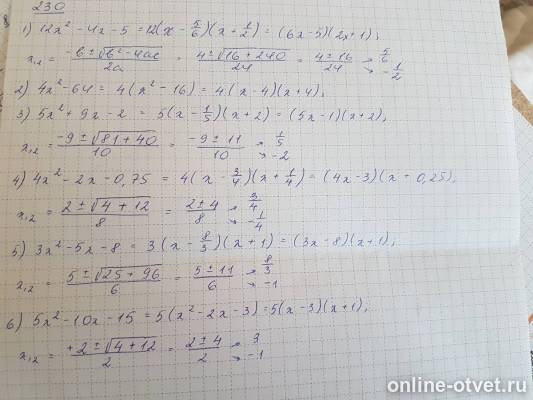 230
1) 12x² - 4x - 5 = 12(x - 5/6)(x + 1/2) = (6x - 5)(2x + 1);
x₁,₂ = (-b ± √(b² - 4ac))/2a = (4 ± √(16 + 240))/24 = (4 ± 16)/24 → 5/6 → -1/2
2) 4x² - 64 = 4(x² - 16) = 4(x - 4)(x + 4);
3) 5x² + 9x - 2 = 5(x - 1/5)(x + 2) = (5x - 1)(x + 2);
x₁,₂ = (-9 ± √(81 + 40))/10 = (-9 ± 11)/10 → 1/5 → -2
4) 4x² - 2x - 0,75 = 4(x - 3/4)(x + 1/4) = (4x - 3)(x + 0,25);
x₁,₂ = (2 ± √(4 + 12))/8 = (2 ± 4)/8 → 3/4 → -1/4
5) 3x² - 5x - 8 = 3(x - 8/3)(x + 1) = (3x - 8)(x + 1);
x₁,₂ = (5 ± √(25 + 96))/6 = (5 ± 11)/6 → 8/3 → -1
6) 5x² - 10x - 15 = 5(x² - 2x - 3) = 5(x - 3)(x + 1);
x₁,₂ = (+2 ± √(4 + 12))/2 = (2 ± 4)/2 → 3 → -1
online-otvet.ru